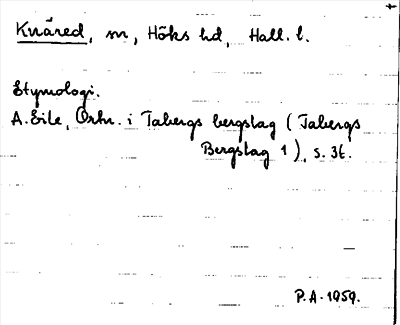 Knäred, sn, Höks hd, Hall. l.
Etymologi.
A. Eile, Ortn. i Tabergs bergslag (Tabergs
Bergslag 1), s. 36.
P.A. 1959.